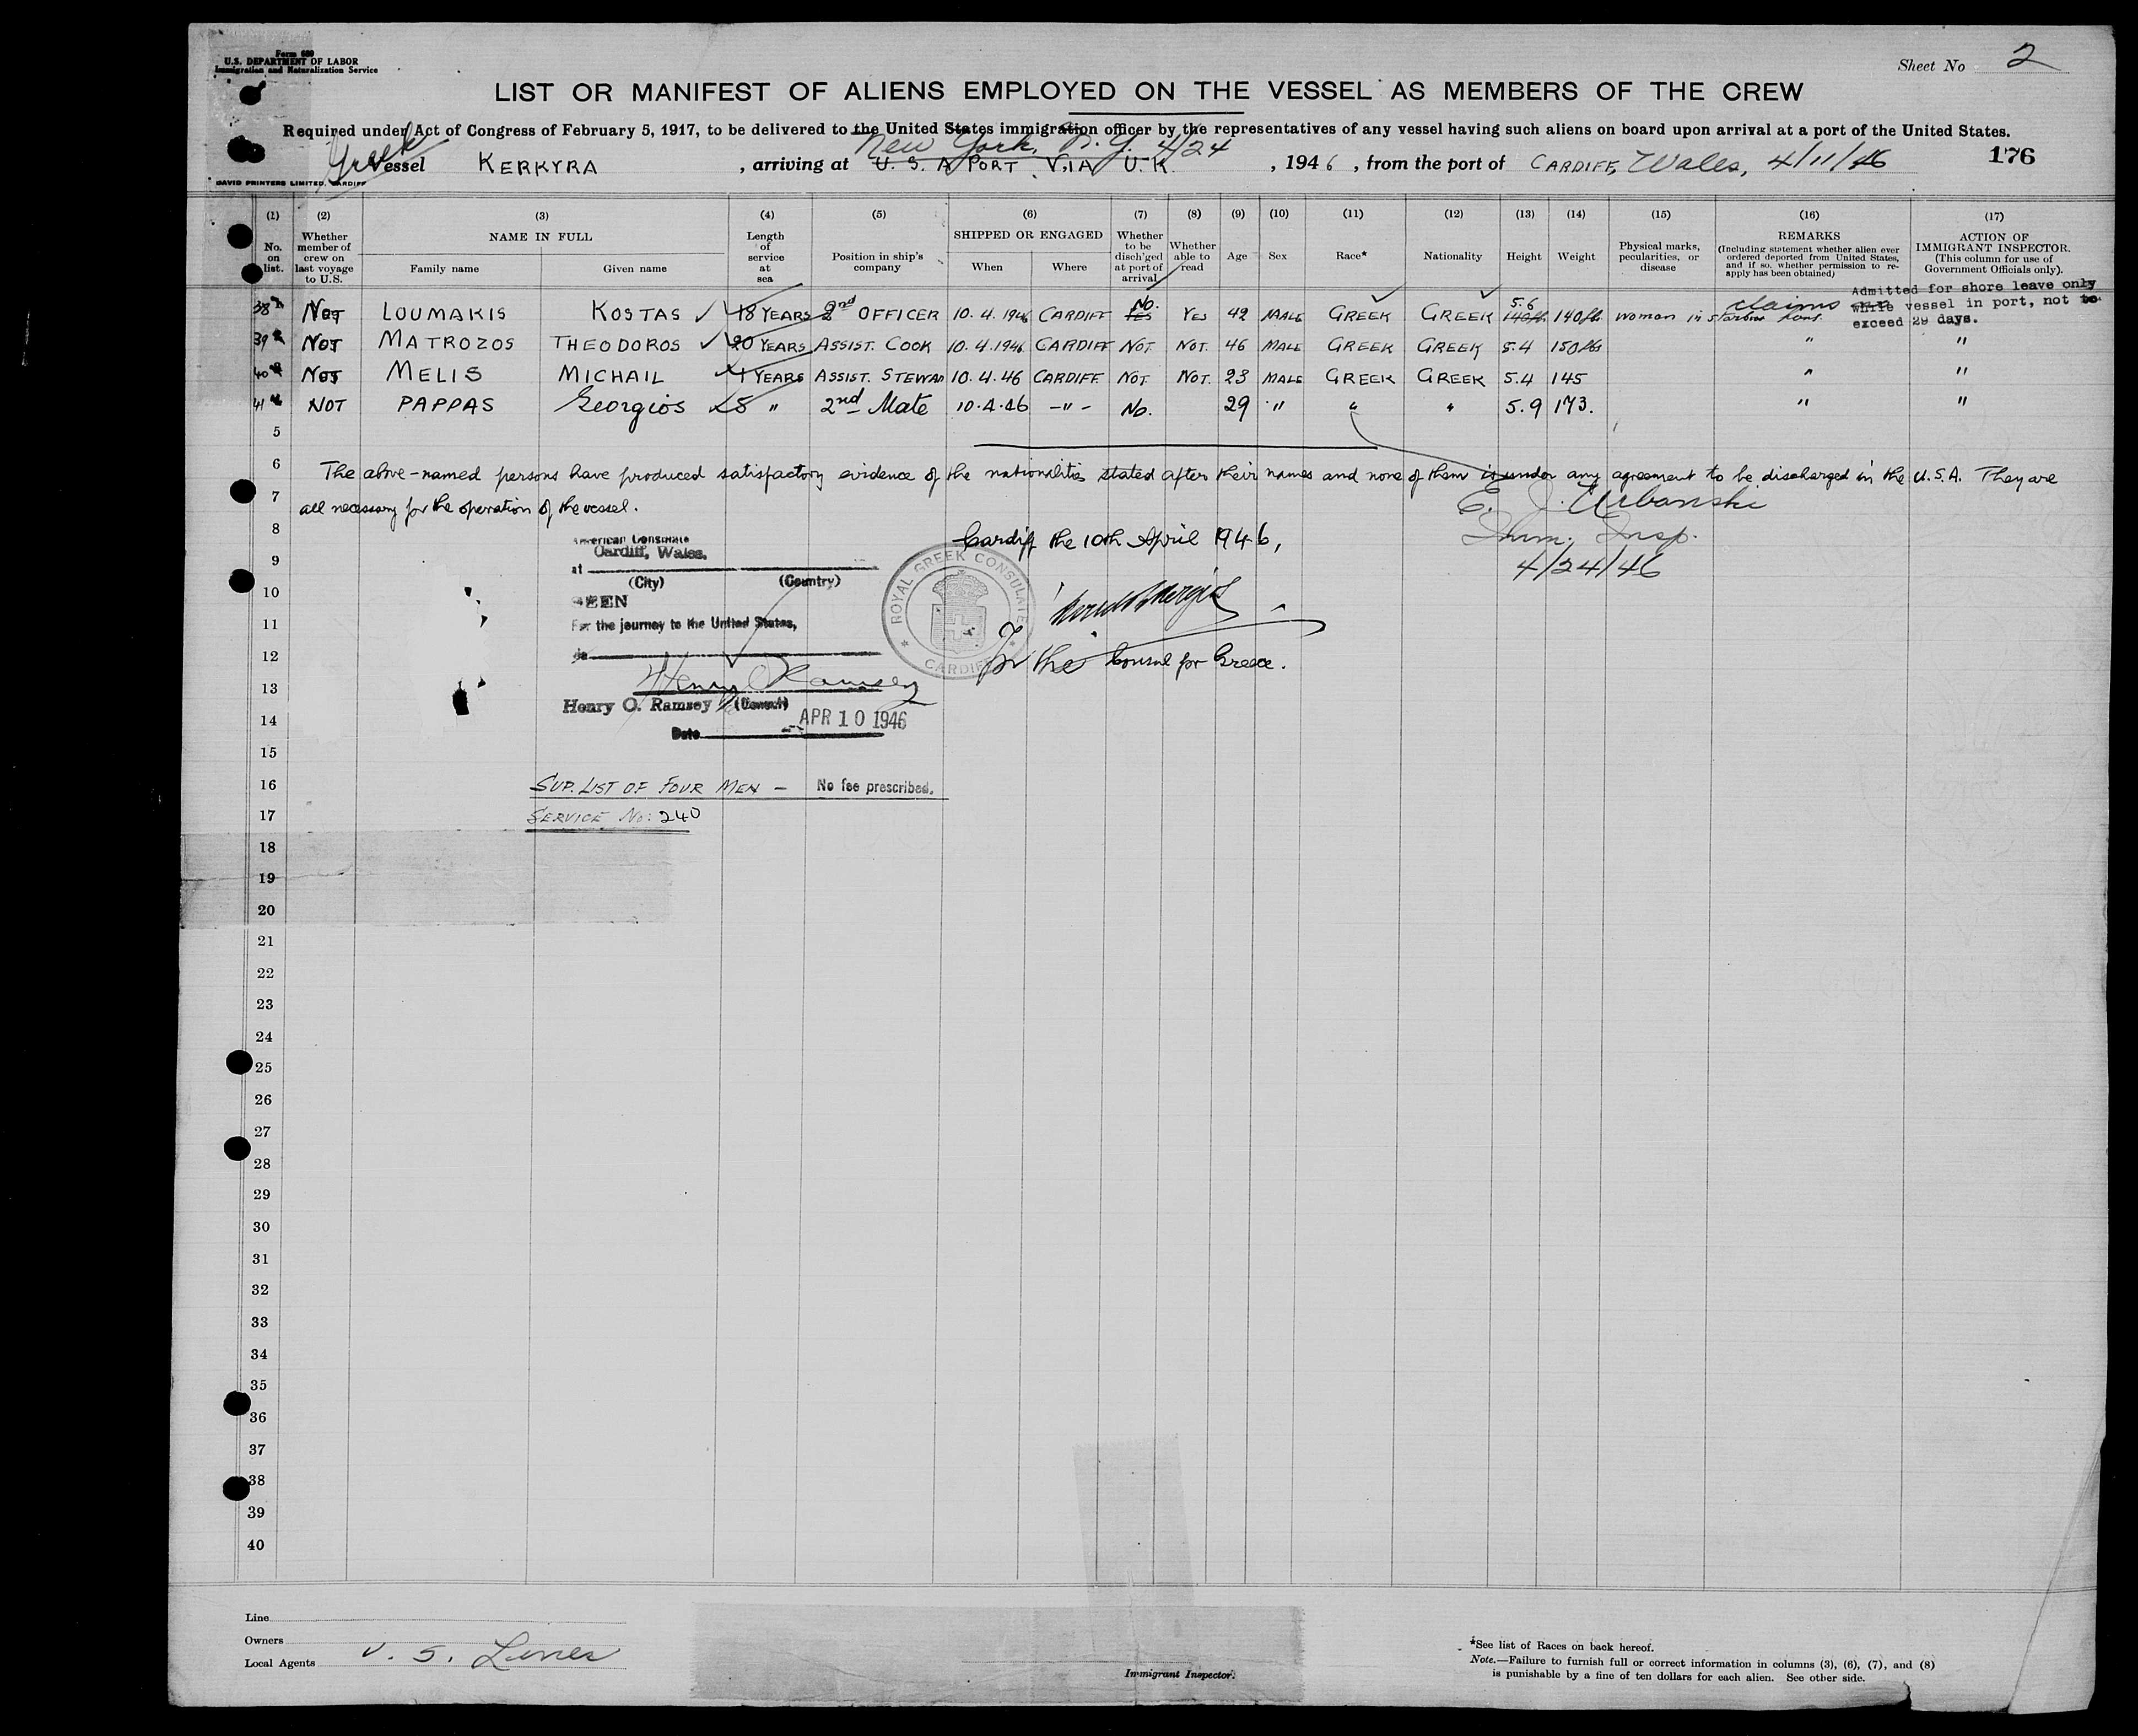 Form 680
U.S. DEPARTMENT OF LABOR
Immigration and Naturalization Service
Sheet No 2
LIST OR MANIFEST OF ALIENS EMPLOYED ON THE VESSEL AS MEMBERS OF THE CREW
Required under Act of Congress of February 5, 1917, to be delivered to the United States immigration officer by the representatives of any vessel having such aliens on board upon arrival at a port of the United States.
Greek New York, N.Y. 4/24
Vessel KERKYRA , arriving at U.S.A PORT VIA U.K. , 1946 , from the port of CARDIFF, Wales, 4/11/46 176
DAVID PRINTERS LIMITED, CARDIFF
(1) (2) (3) (4) (5) (6) (7) (8) (9) (10) (11) (12) (13) (14) (15) (16) (17)
No. on list.
Whether member of crew on last voyage to U.S.
NAME IN FULL
Family name Given name
Length of service at sea
Position in ship's company
SHIPPED OR ENGAGED
When Where
Whether to be disch'ged at port of arrival
Whether able to read
Age
Sex
Race*
Nationality
Height
Weight
Physical marks, pecularities, or disease
REMARKS
(Including statement whether alien ever ordered deported from United States, and if so, whether permission to re-apply has been obtained)
ACTION OF IMMIGRANT INSPECTOR.
(This column for use of Government Officials only).
Admitted for shore leave only
while vessel in port, not to
exceed 29 days.
38 NOT LOUMAKIS KOSTAS 18 YEARS 2nd OFFICER 10.4.1946 CARDIFF No. YES 42 MALE GREEK GREEK 5.6 140 lb. woman in claims
39 NOT MATROZOS THEODOROS 20 YEARS ASSIST. COOK 10.4.1946 CARDIFF NOT NOT. 46 MALE GREEK GREEK 5.4 150 lbs " "
40 NOT MELIS MICHAIL 4 YEARS ASSIST. STEWAD 10.4.46 CARDIFF NOT NOT. 23 MALE GREEK GREEK 5.4 145 " "
41 NOT PAPPAS Georgios 8 " 2nd Mate 10.4.46 -"- No. 29 " " " 5.9 173. " "
5
6 The above-named persons have produced satisfactory evidence of the nationalities stated after their names and none of them is under any agreement to be discharged in the U.S.A. They are
7 all necessary for the operation of the vessel.
E. J. Urbanski
8 Imm. Insp.
American Consulate
Cardiff, Wales.
Cardiff the 10th April 1946,
9 at 4/24/46
(City) (Country)
10 SEEN
11 For the journey to the United States,
ROYAL GREEK CONSULATE
CARDIFF
12 For the Consul for Greece.
13 Henry O Ramsey
Henry O. Ramsey (Consul)
14 APR 10 1946
Date
15
16 SUP. LIST OF FOUR MEN - No fee prescribed.
17 SERVICE No: 240
18
19
20
21
22
23
24
25
26
27
28
29
30
31
32
33
34
35
36
37
38
39
40
Line
Owners
Local Agents U. S. Lines
Immigrant Inspector.
*See list of Races on back hereof.
Note.—Failure to furnish full or correct information in columns (3), (6), (7), and (8)
is punishable by a fine of ten dollars for each alien. See other side.